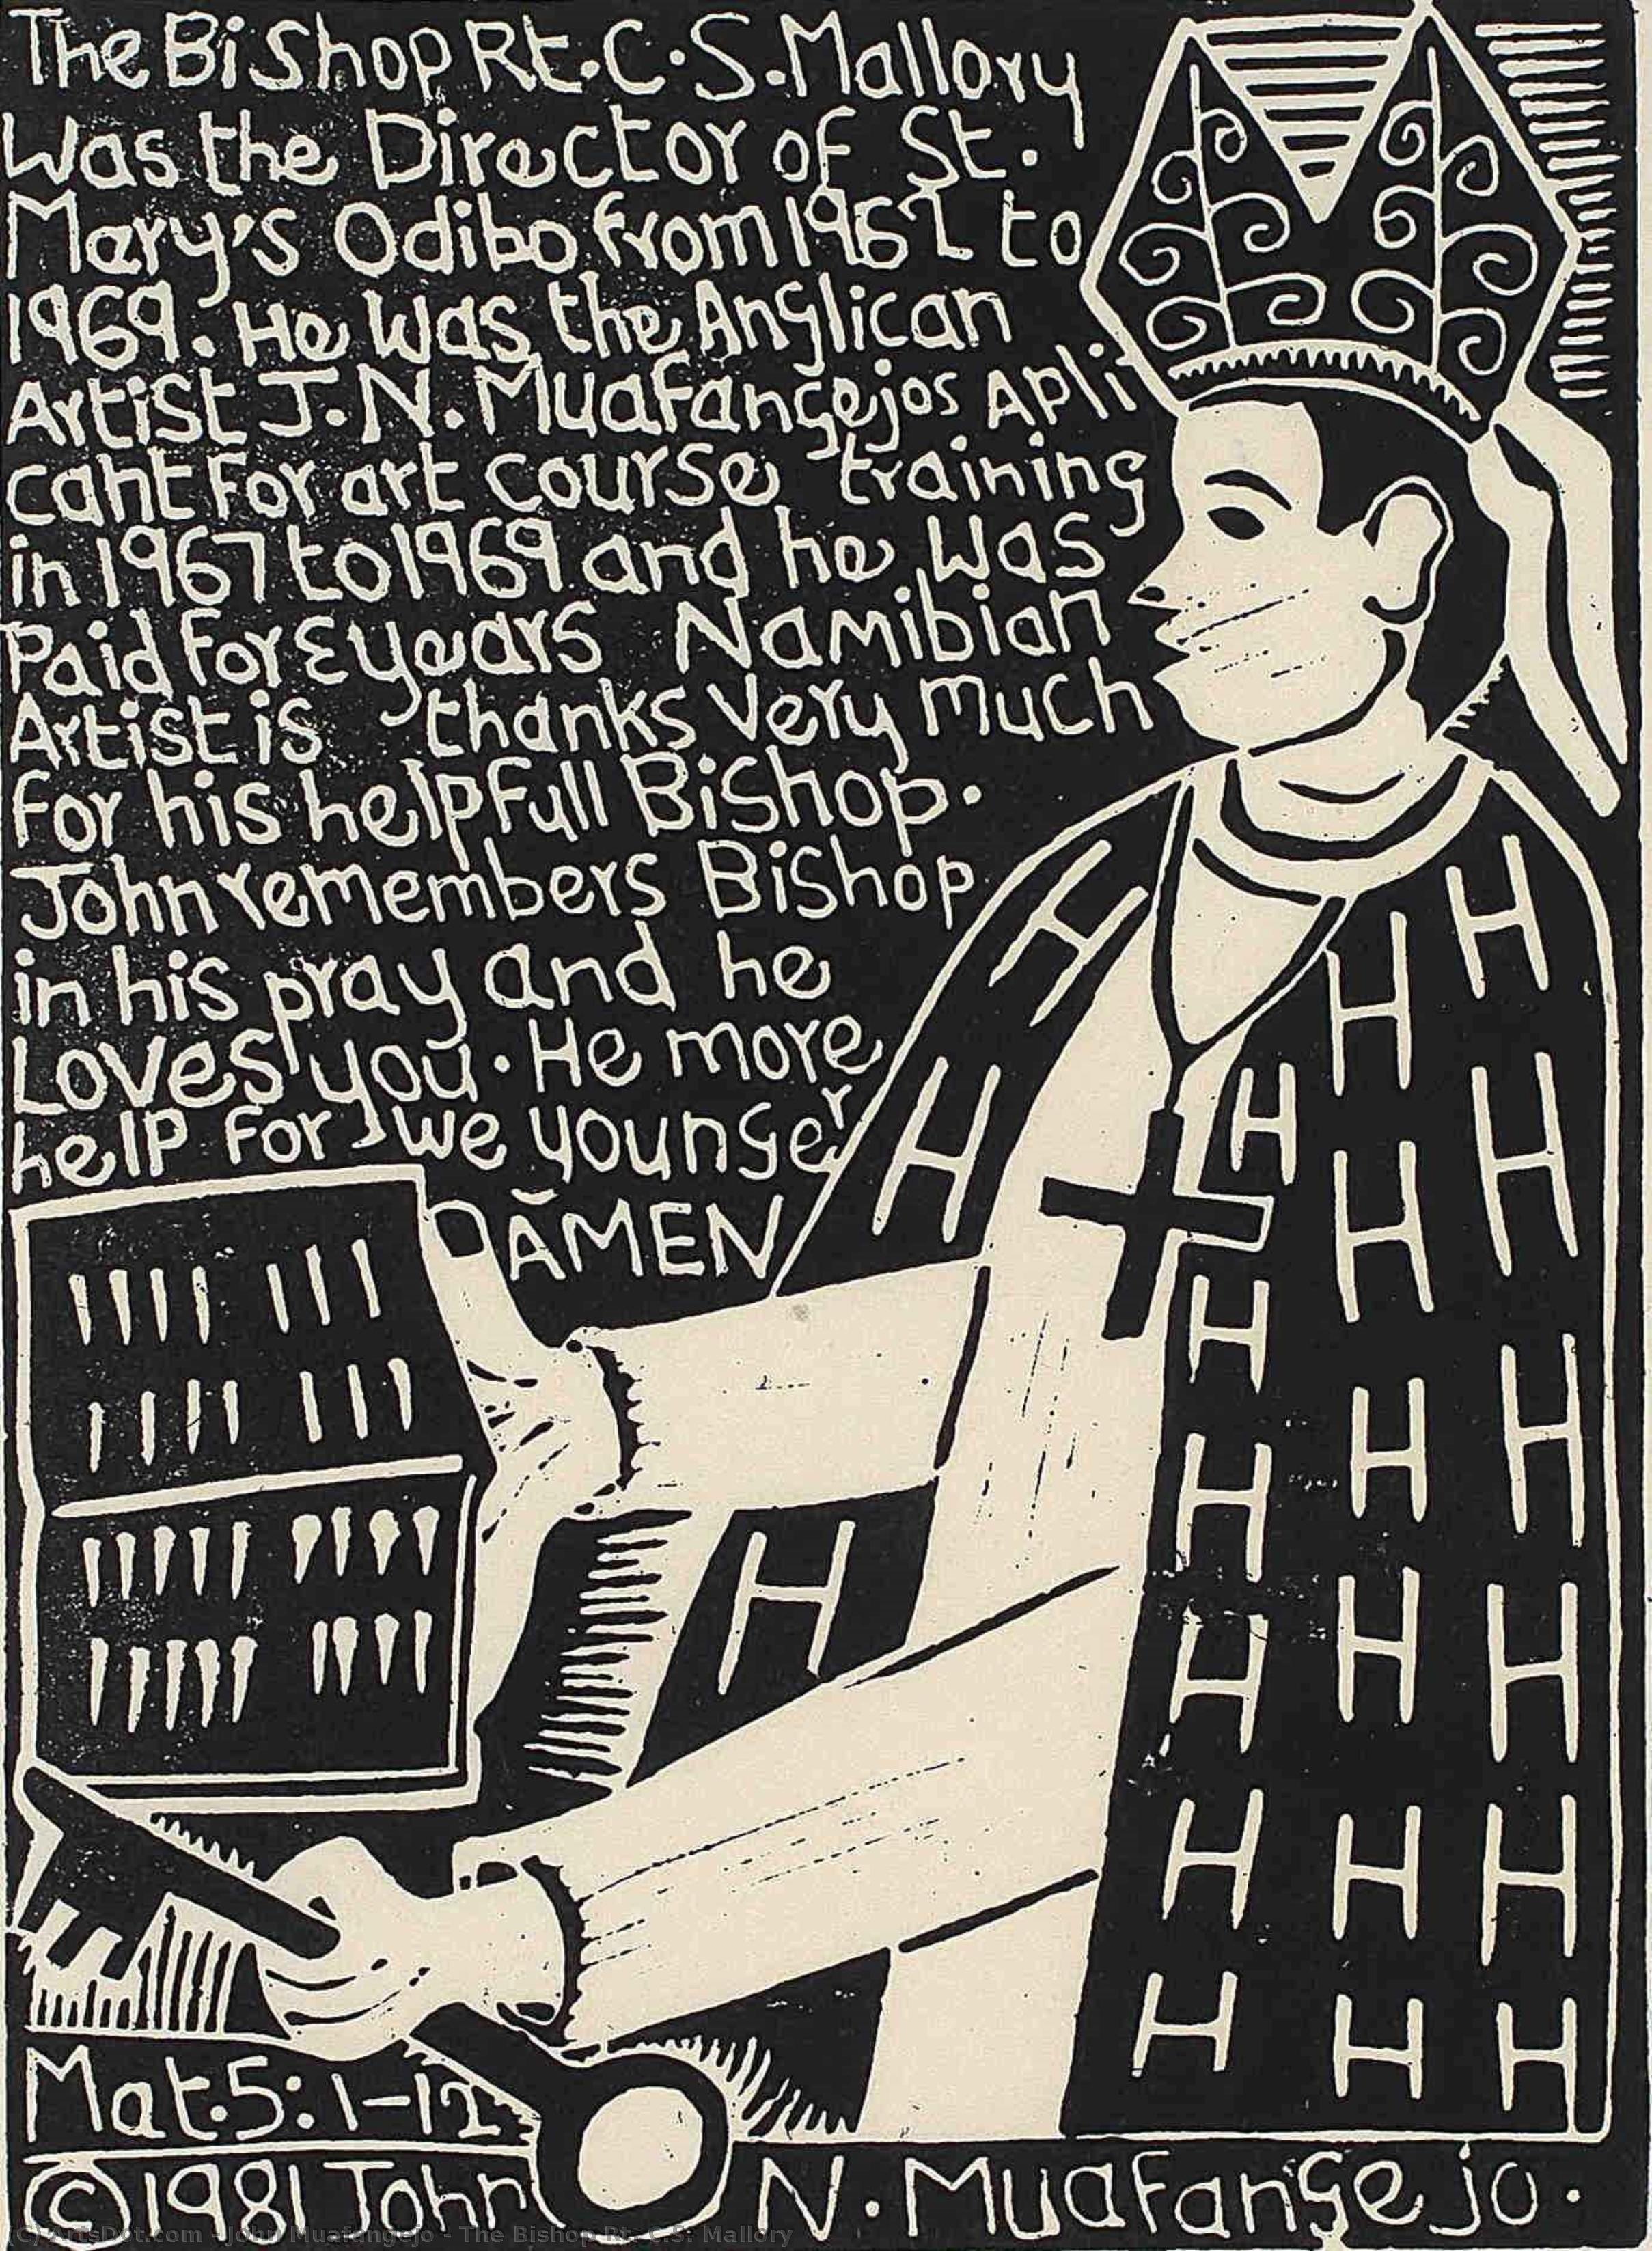 The BiShop Rt. C. S. Mallory
Was the Director of St.
Mary's Odibo from 1962 to
1969. He Was the Anglican
Artist J. N. Muafangejos Apli
cant For art course training
in 1967 to 1969 and he Was
Paid For Ɛ years Namibian
Artist is thanks Very much
For his helpFull BiShop.
John remembers BiShop
in his pray and he
Loves you. He more
help For we younger
AMEN
Mat. 5: 1-12
© 1981 John N. MuaFangejo.
(C) ArtsDot.com - John Muafangejo - The Bishop Rt. C.S. Mallory